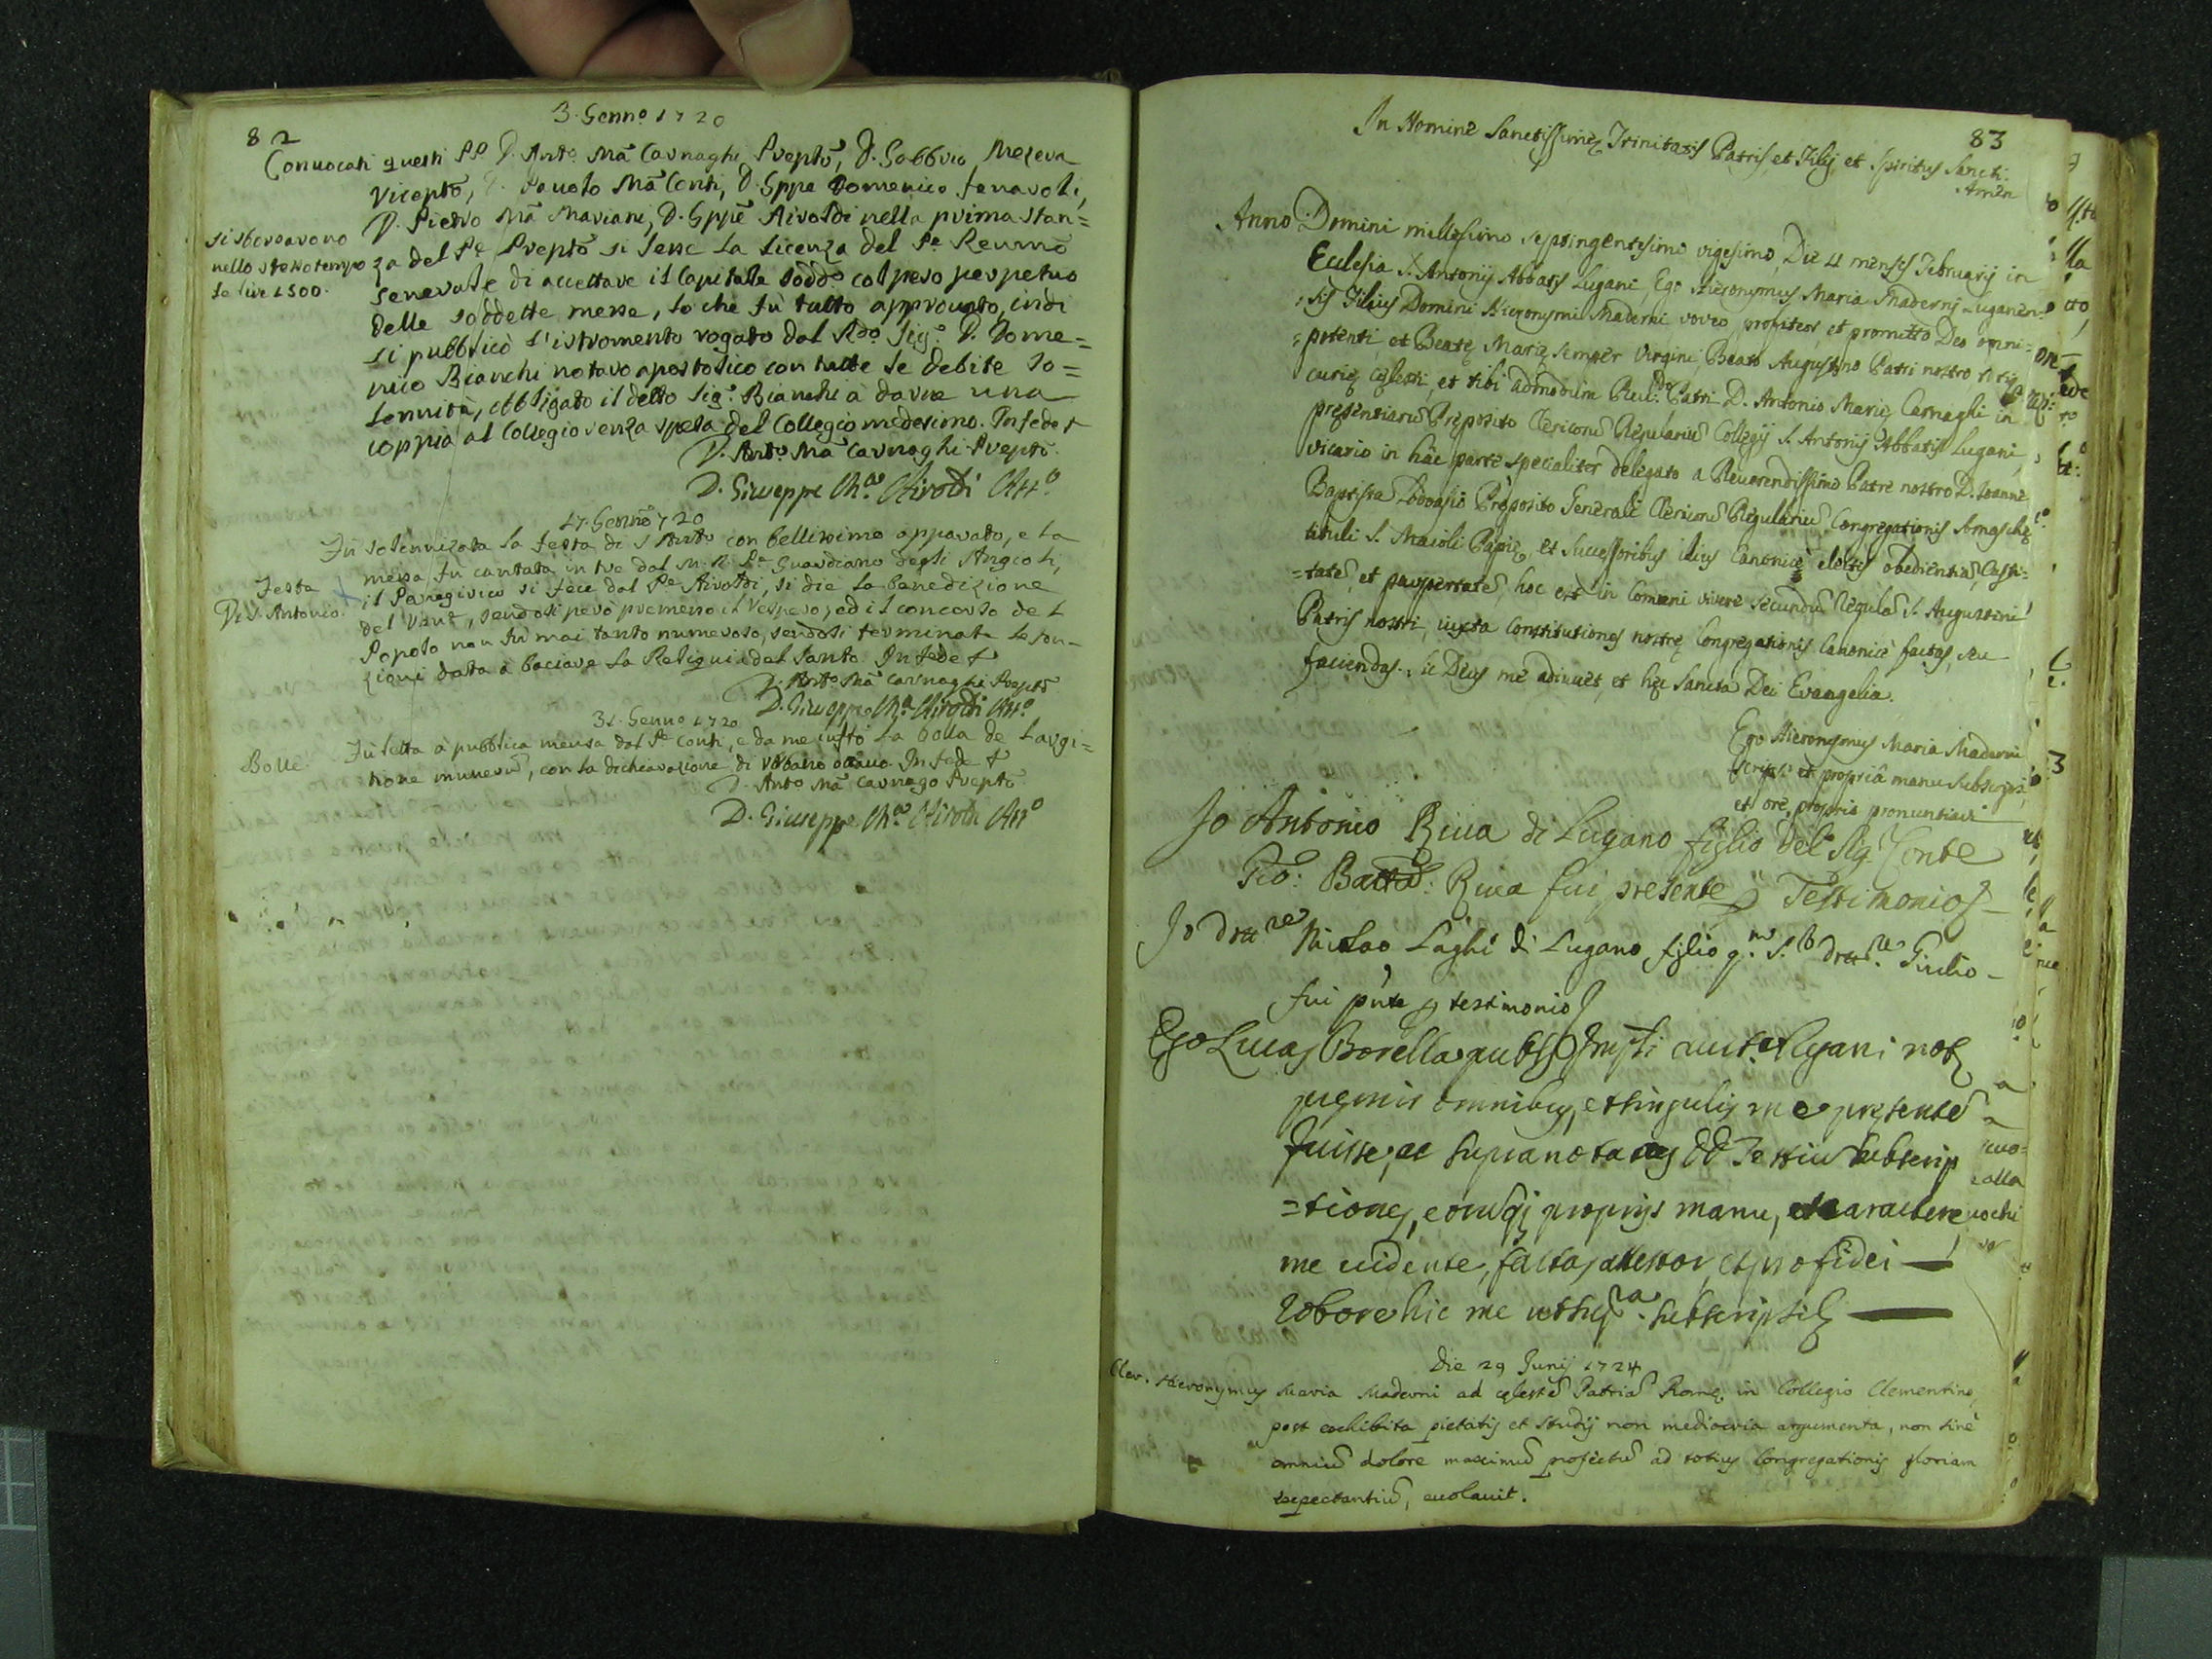 82
3. Genn.o 1720
Convocati questi PP. D. Ant.o Mã Carnaghi Prepto, D. Gabbrio Mezera
Vicepto, D. Pauolo Mã Conti, D. Gppe Domenico Fanaroli,
D. Pietro Mã Mariani, D. Gppe Airoldi nella prima stan=
za del P.e Prepto si lesse la licenza del P.e Reumo
Generale di accettare il Capitale sodd.o col peso perpetuo
delle soddette messe, lo che fù tutto approuato, indi
si pubblicò l'istromento rogato dal R.do Sig.r D. Dome=
nico Bianchi notaro apostolico con tutte le debite so=
lennità, obbligato il detto Sig.r Bianchi à darne una
coppia al Collegio senza spesa del Collegio medesimo. In fede
D. Ant.o Mã Carnaghi Prepto
D. Giuseppe M.a Airoldi Att.o
si sborsarono
nello stesso tempo
le lire 1500.
17. Genn.o 1720
Fù solennizata la festa di S Ant.o con bellissimo apparato, e la
messa fù cantata in tre dal M. R. P.e Guardiano degli Angioli,
il Panegirico si fece dal P.e Airoldi, si die la benedizione
del Ven.e, sendosi però premesso il Vespero, ed il concorso del
Popolo non fù mai tanto numeroso, sendosi terminate le fon=
zioni data à baciare la Reliquia del Santo. In fede
D. Ant.o Mã Carnaghi Prepto
D. Giuseppe M.a Airoldi Att.o
Festa
Di S. Antonio.
31. Genn.o 1720
Fù letta à pubblica mensa dal P.e Conti, e da me inf.to la bolla de largi=
tione munerum, con la dichiarazione di Vrbano ottauo. In fede
D. Ant.o Mã Carnago Prepto
D. Giuseppe M.a Airoldi Att.o
Bolle.
83
In Nomine Sanctissimę Trinitatis Patris, et Filij, et Spiritus Sancti.
Amen
Anno Domini millesimo septingentesimo vigesimo, Die 4 mensis Februarij in
Ecclesia S. Antonij Abbatis Lugani, Ego Hieronymus Maria Maderni Luganen=
sis Filius Domini Hieronymi Maderni voveo, profiteor, et promitto Deo omni=
potenti, et Beatę Marię semper Virgini, Beato Augustino Patri nostro
curię cęlesti, et tibi admodum Reu.do Patri D. Antonio Marię Carnaghi in
pręsentiarũ Pręposito Clericorũ Regulariũ Collegij S. Antonij Abbatis Lugani,
vicario in hâc parte specialiter delegato a Reuerendissimo Patre nostro D. Ioanne
Baptista Lodovasio Pręposito Generali Clericorũ Regulariũ Congregationis Somaschę
tituli S. Maioli Papię, et Successoribus eius Canonicè electis obedientiã, Casti=
tatẽ, et paupertatẽ, hoc est in Comuni vivere secundũ Regulã S. Augustini
Patris nostri, iuxta Constitutiones nostrę Congregationis Canonicè factas, seu
faciendas. Sic Deus me adiuuet, et hęc Sancta Dei Evangelia.
Ego Hieronymus Maria Maderni
scripsi et propriâ manu subscripsi,
et ore proprio pronuntiavi
Io Antonio Riua di Lugano figlio del Sig.r Conte
Gio: Batta: Riua fui presente p Testimonio
Io Dott.re Nicolao Laghi di Lugano figlio q.m S.r Dott.re Giulio
fui pñte p testimonio
Ego Lucas Borella publ. Lugani not.
pręmissis omnibus, et singulis me pręsentẽ
fuisse, ac supranotatas DD. Testiũ subscrip
=tiones, eorũq; proprijs manu, et caractere
me uidente, factas attestor, et pro fidei
robore hic me subscripsi
Die 29 Junij 1724
Cler. Hieronymus Maria Maderni ad cęlestẽ Patriã Romę in Collegio Clementino,
post exhibita pietatis et studij non mediocria argumenta, non sinè
omniũ dolore maximũ profectũ ad totius Congregationis gloriam
expectantiũ, euolauit.